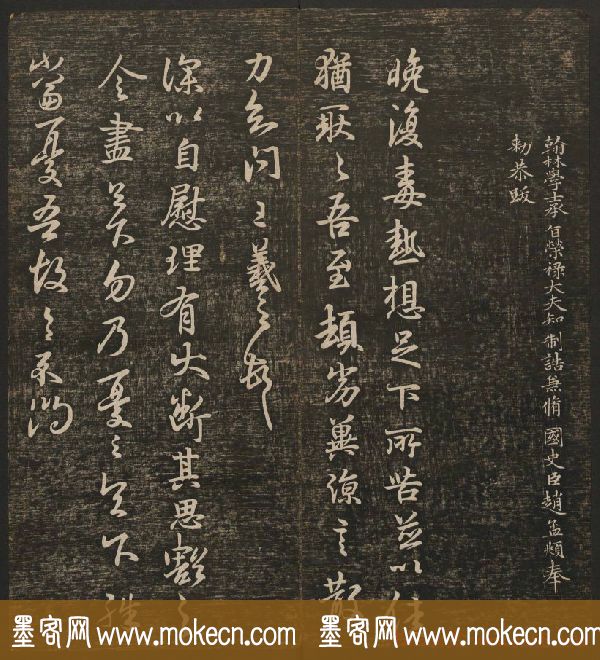 翰林學士承旨榮祿大夫知制誥兼脩國史臣趙孟頫奉
勅恭跋
晚復毒熱想足下所苦並以佳
猶耿〻吾至頓劣冀涼言散
力知問王羲之報
深以自慰理有大斷其思豁之
令盡足下勿乃憂之足下殊
當憂吾故具示問
墨客网 www.mokecn.com 墨客网 www.mokecn.com